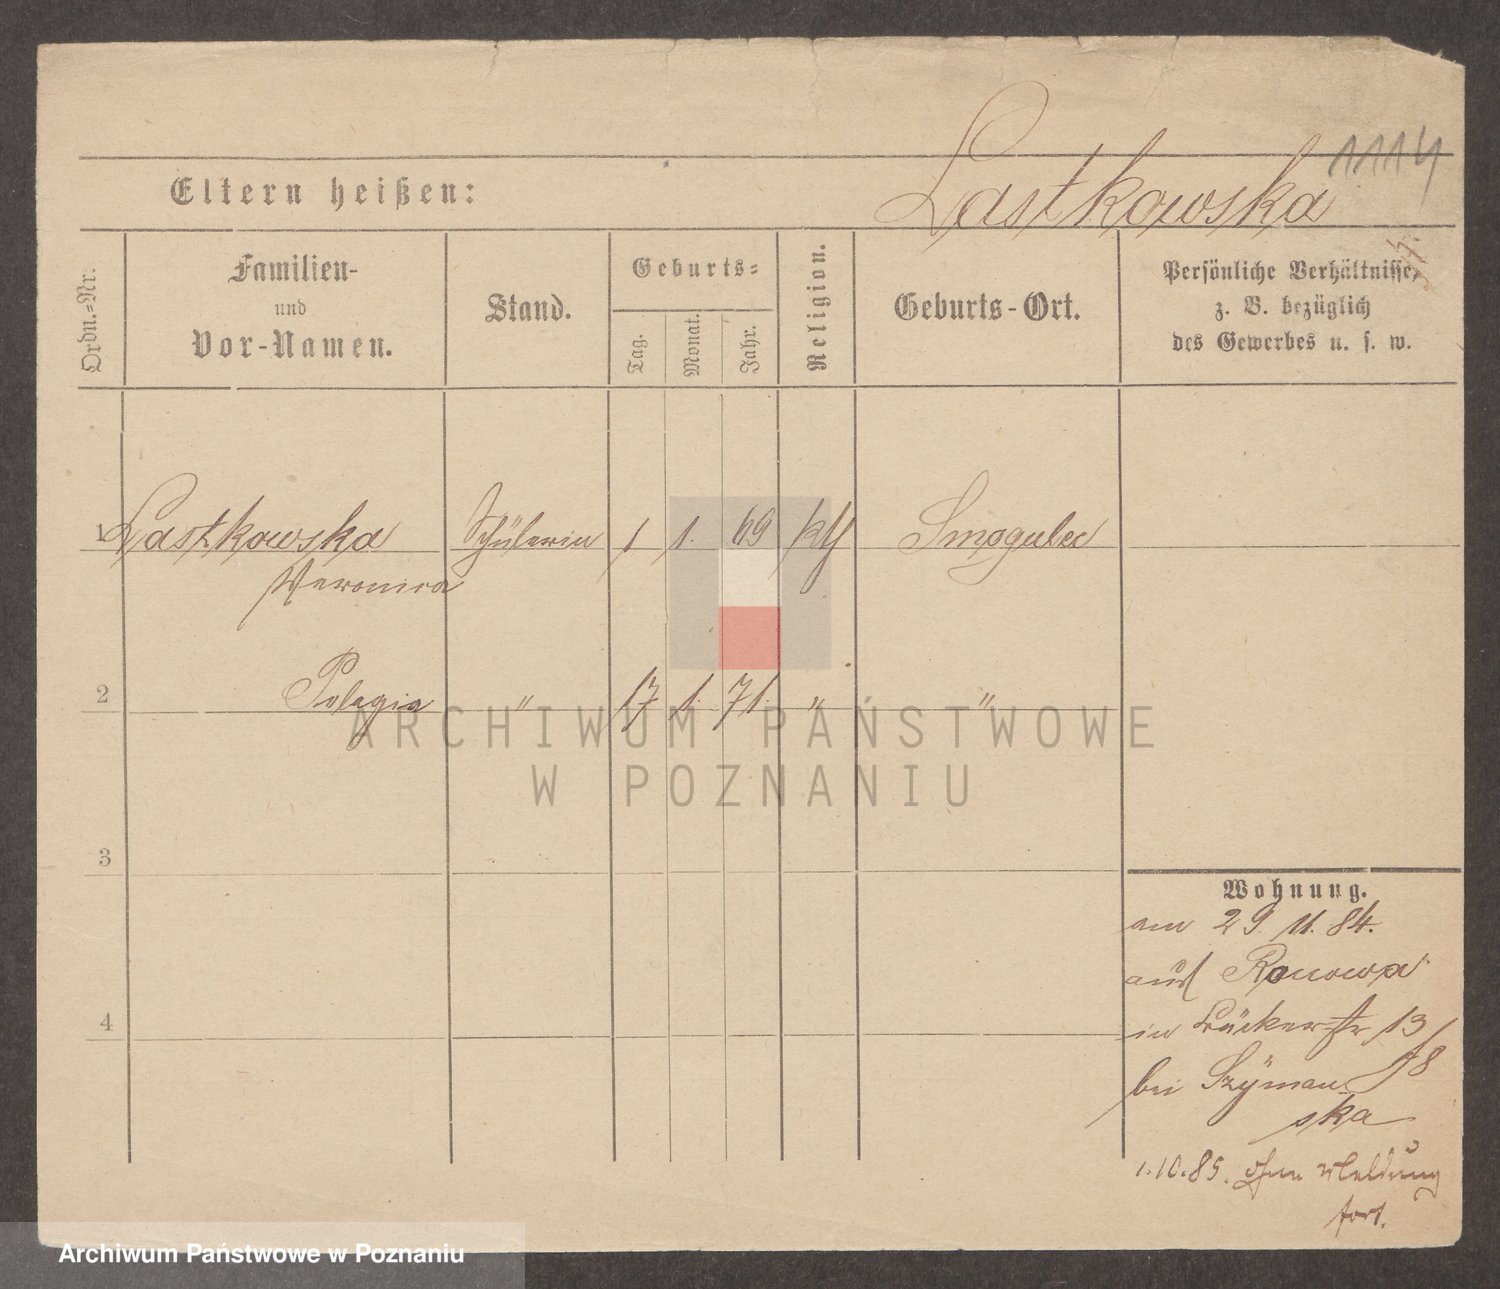 1114
Lastkowska
Eltern heißen:
Ordn.=Nr.
Familien-
und
Vor-Namen.
Stand.
Geburts=
Tag.
Monat.
Jahr.
Religion.
Geburts-Ort.
Persönliche Verhältnisse,
z. B. bezüglich
des Gewerbes u. s. w.
1 Lastkowska Schülerin 1 1. 69 kth Smogulec
Veronica
2 Pelagia " 17 1. 71. " "
ARCHIWUM PAŃSTWOWE
W POZNANIU
3
4
Wohnung.
am 29. 11. 84.
aus Ronowa
in Bäckerstr 13
bei Szÿman
ska
1.10.85. ohne Meldung
fort.
Archiwum Państwowe w Poznaniu